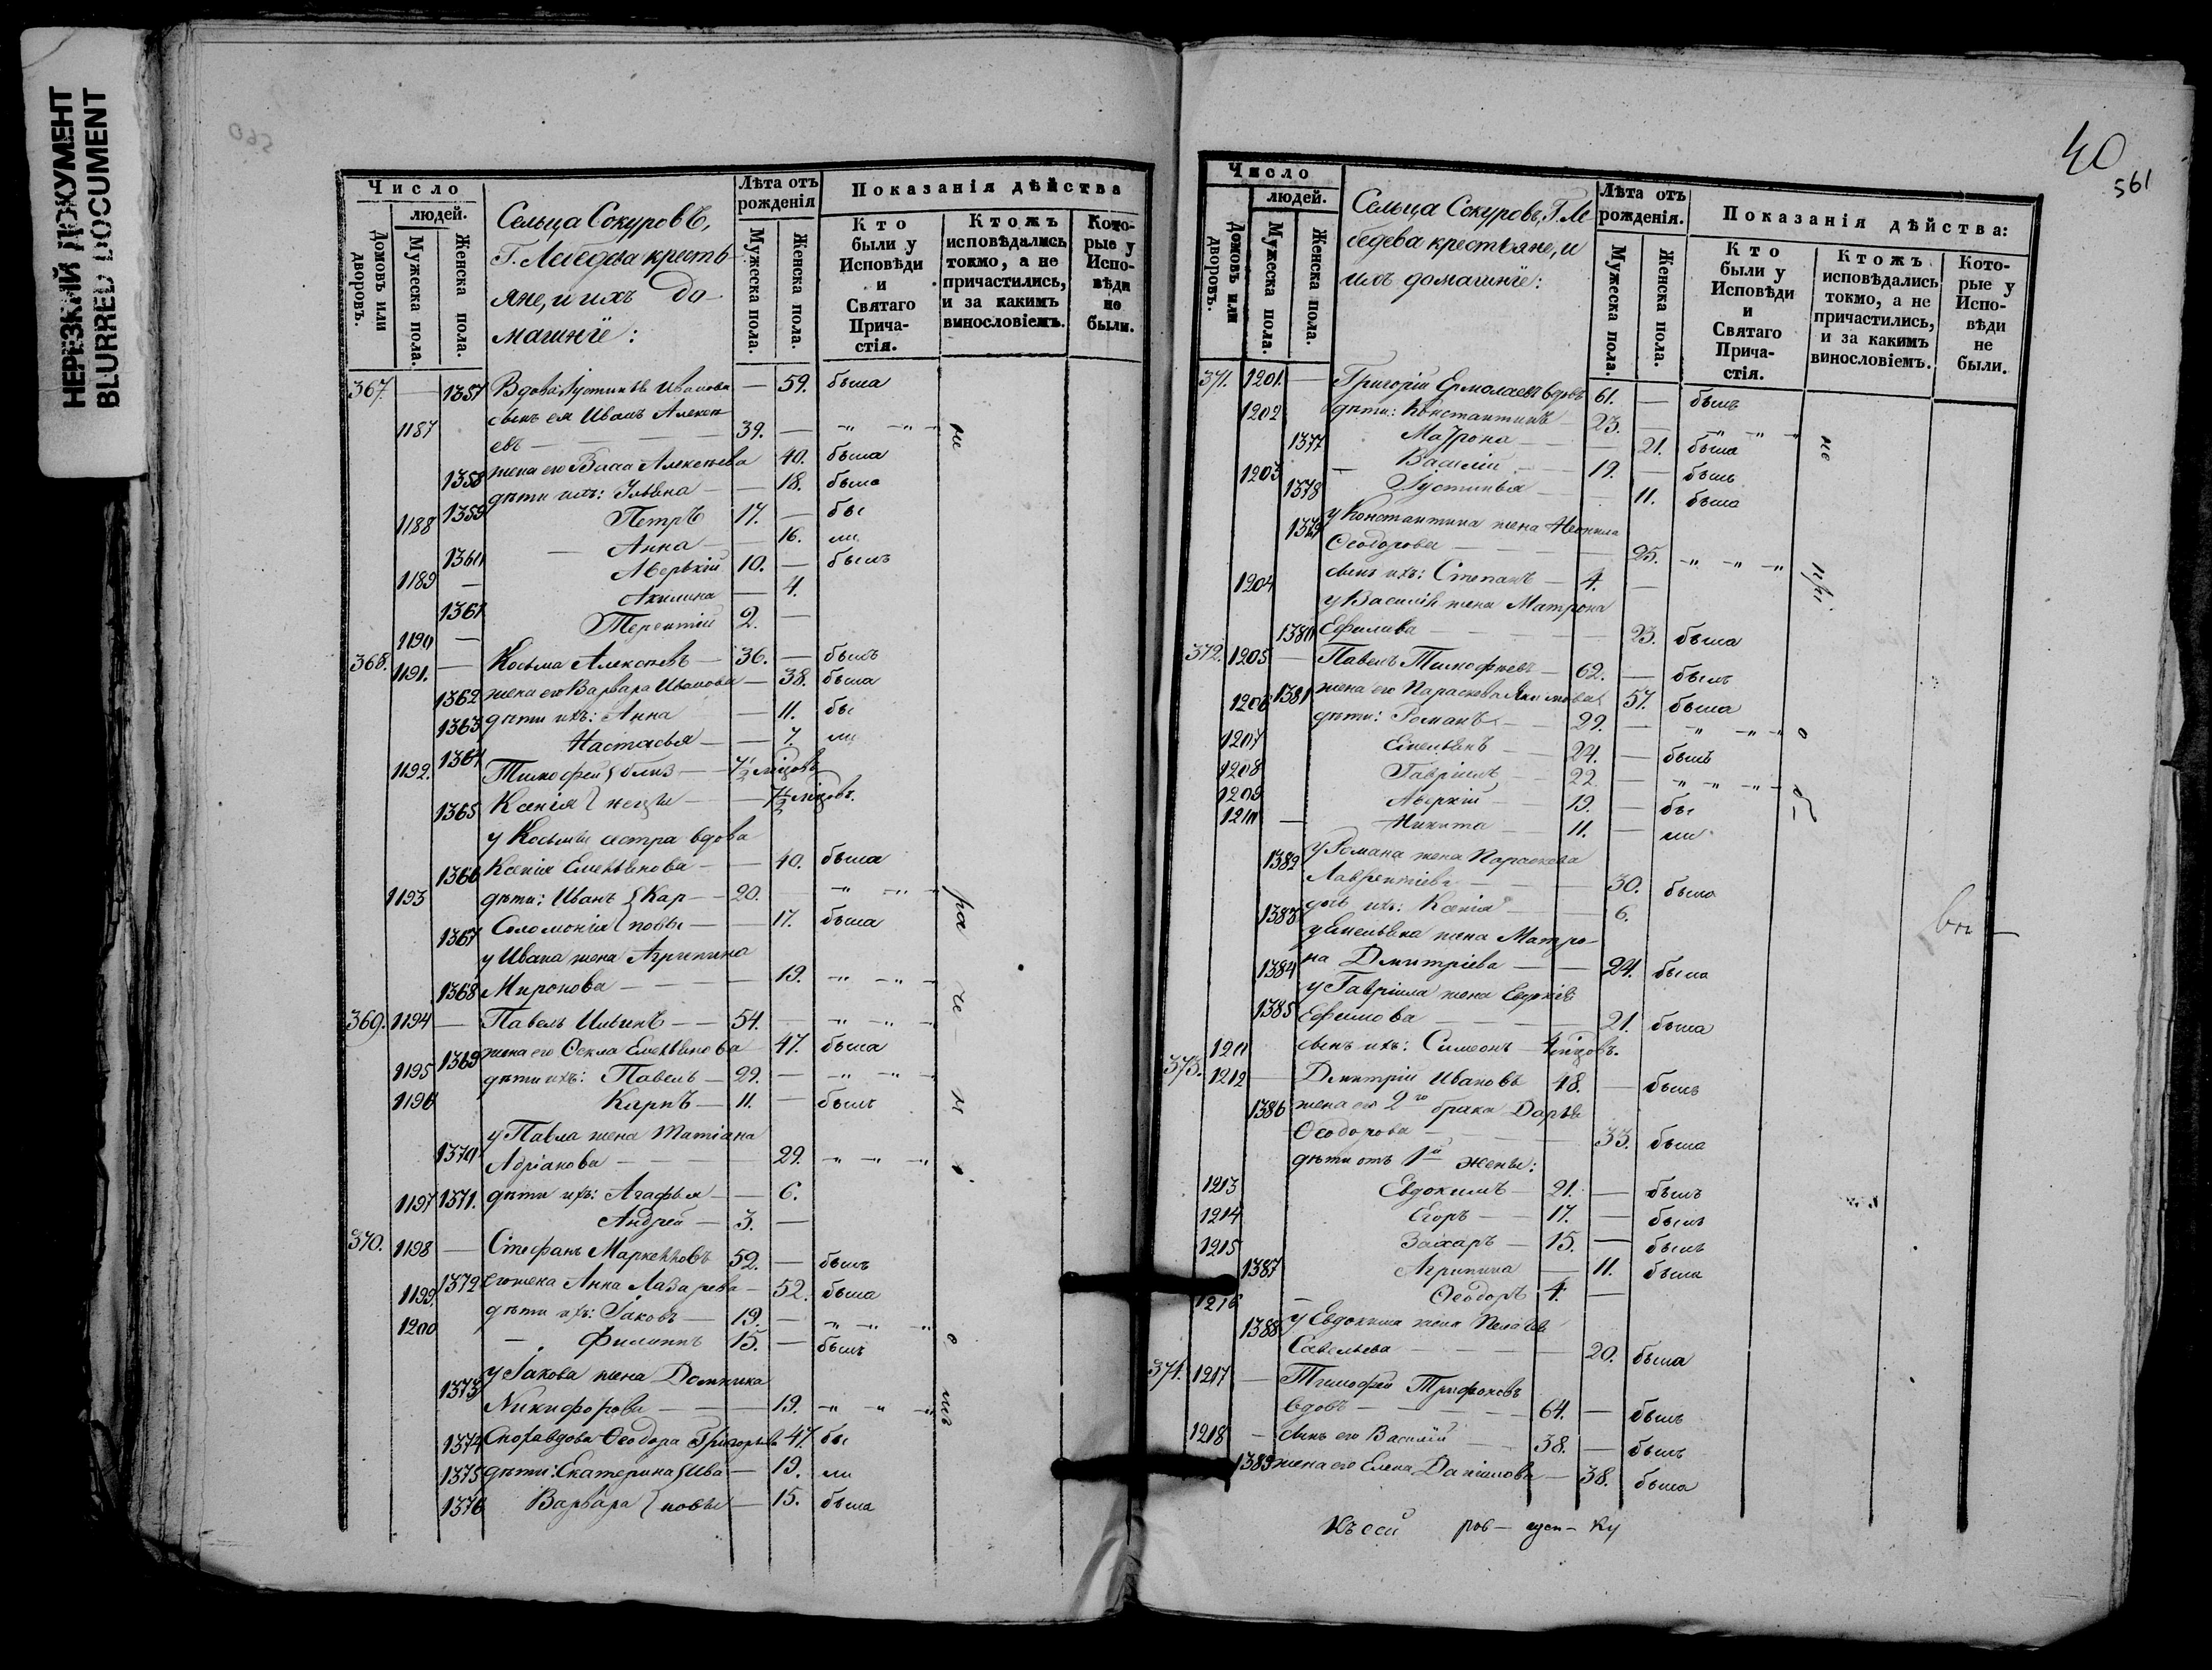 НЕРЕЗКИЙ ДОКУМЕНТ
BLURRED DOCUMENT
Число
людей.
Домовъ или дворовъ.
Мужеска пола.
Женска пола.
Сельца Сокуровъ,
Г. Лебедева кресть-
яне, и ихъ до-
машнїе:
Лѣта отъ рожденія
Мужеска пола.
Женска пола.
Показанія дѣйства
Кто были у Исповѣди и Святаго Прича-стія.
Ктожъ исповѣдались токмо, а не причастились, и за какимъ винословіемъ.
Кото-рые у Испо-вѣди не были.
367. — 1357 Вдова Іустинья Иванова — 59. была
сынъ ея Иванъ Алексѣ-
1187 евъ — 39. — „ „
1358 жена его Васса Алексѣева 40. была
1359 дѣти ихъ: Ульяна — 18. была
1188 Петръ 17. — бы
1360 Анна — 16. ли
1189 — Аверкій 10. — былъ
1361 Акилина — 4.
1190 — Терентій 2. —
368. 1191. — Косьма Алексѣевъ — 36. — былъ
1362 жена его Варвара Иванова — 38. была
1363 дѣти ихъ: Анна — 11. бы
1364 Настасья — 7. ли
1192. Тимофей близ — 7 1/2 мѣсцовъ
1365 Ксенія нецы — 7 1/2 мѣсцовъ.
у Косьмы сестра вдова
1366 Ксенія Емельянова — 40. была
1193 дѣти: Иванъ Кар — 20. — „ „
1367 Соломонія повы — 17. была
у Ивана жена Агрипина
1368 Миронова — 19. „ „
369. 1194 — Павелъ Ильинъ — 54. — „ „
1369 жена его Ѳекла Емельянова 47. была
1195 дѣти ихъ: Павелъ — 29. — „ „
1196 Карпъ — 11. — былъ
у Павла жена Татіана
1370 Адріанова — 29. „ „
1197 1371. дѣти ихъ: Агафья — 6.
Андрей — 3. —
370. 1198 — Стефанъ 52. — былъ
1372 его жена Анна Лазарева — 52. была
1199. дѣти ихъ: Іаковъ — 19. — „ „
1200 Филиппъ 15. — былъ
у Іакова жена Домника
1373 Никифорова — 19. „ „
1374 вдова Ѳеодора Григорьева 47. бы
1375 дѣти: Екатерина Ива — 19. ли
1376 Варвара новы — 15. была
40
561
Число
людей.
Домовъ или дворовъ.
Мужеска пола.
Женска пола.
Сельца Сокуровъ, Г. Ле-
бедева крестьяне, и
ихъ домашнїе:
Лѣта отъ рожденія.
Мужеска пола.
Женска пола.
Показанія дѣйства:
Кто были у Исповѣди и Святаго Прича-стія.
Ктожъ исповѣдались токмо, а не причастились, и за какимъ винословіемъ.
Кото-рые у Испо-вѣди не были.
371. 1201. — Григорій Ермолаевъ вдовъ 61. — былъ
1202 дѣти: Константинъ 23. — „ „
1377 Матрона — 21. была
1203 — Василій — 19. — былъ
1378 Іустинья — 11. была
у Константина жена Неонила
1379 Ѳеодорова — 25. „ „ „
1204 сынъ ихъ: Степанъ — 4. —
у Василія жена Матрона
1380 — 23. была
372. 1205 — Павелъ Тимофѣевъ — 62. — былъ
1381 жена его Параскева Якимова 57. была
1206 дѣти: Романъ — 29. — „ „
1207 Емельянъ — 24. — былъ
1208 Гавріилъ — 22 — „ „ „
1209 Аверкій — 19. — бы
1210 — Никита — 11. — ли
у Романа жена Параскева
1382 Лаврентіева — 30. была
1383 дочь ихъ: Ксенія — 6.
у Емельяна жена Матро-
1384 на Дмитріева — 24. была
у Гавріила жена Евдокія
1385 Ефимова — 21. была
1211 сынъ ихъ: Симеонъ — мѣсцовъ.
373. 1212 — Дмитрій Ивановъ 48. — былъ
1386 жена его 2го брака Дарья
Ѳеодорова — 33. была
дѣти отъ 1й жены:
1213 Евдокимъ — 21. — былъ
1214 Егоръ — 17. — былъ
1215 Захаръ — 15. — былъ
1387 Агрипина — 11. была
1216 — Ѳеодоръ 4. —
1388 у Евдокима жена Пелагея
Савельева — 20. была
374. 1217 — Тимофей Трифоновъ
вдовъ — 64. — былъ
1218 — сынъ его Василій — 38. — былъ
1389 жена его Елена Данилова — 38. была
Къ сей